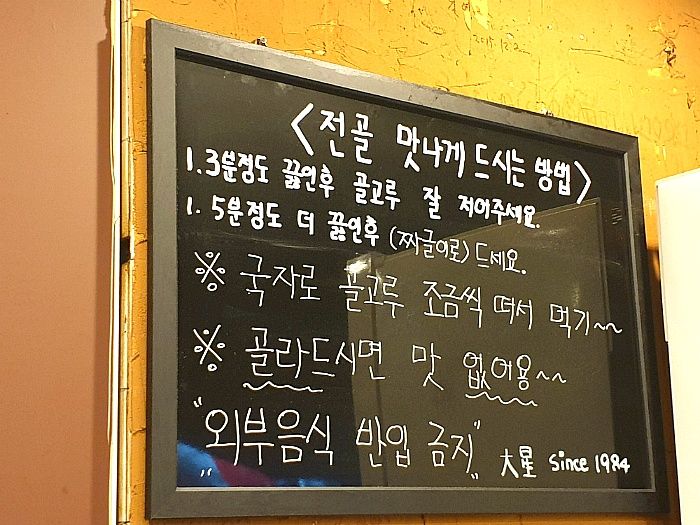 <전골 맛나게 드시는 방법>
1. 3분정도 끓인후 골고루 잘 저어주세요.
1. 5분정도 더 끓인후 (짜글이로) 드세요.
※ 국자로 골고루 조금씩 떠서 먹기~~
※ 골라드시면 맛 없어용~~
"외부음식 반입 금지"
大星 since 1984